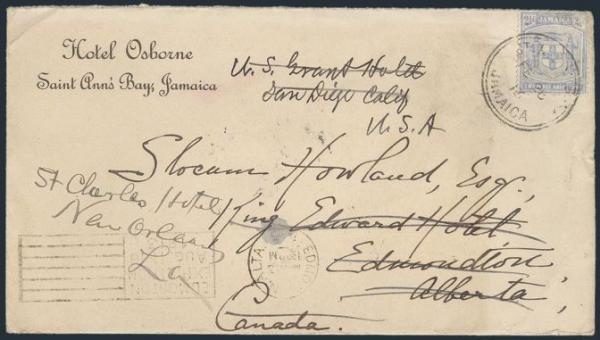 Hotel Osborne
Saint Ann's Bay, Jamaica
2½ JAMAICA 2½
JAMAICA
U.S. Grant Hotel
San Diego Calif
U.S.A
Slocum Howland, Esq.,
King Edward Hotel
Edmondton
Alberta,
Canada.
St Charles Hotel
New Orleans
La
EDMON
ALTA
EDMONTON
AUG